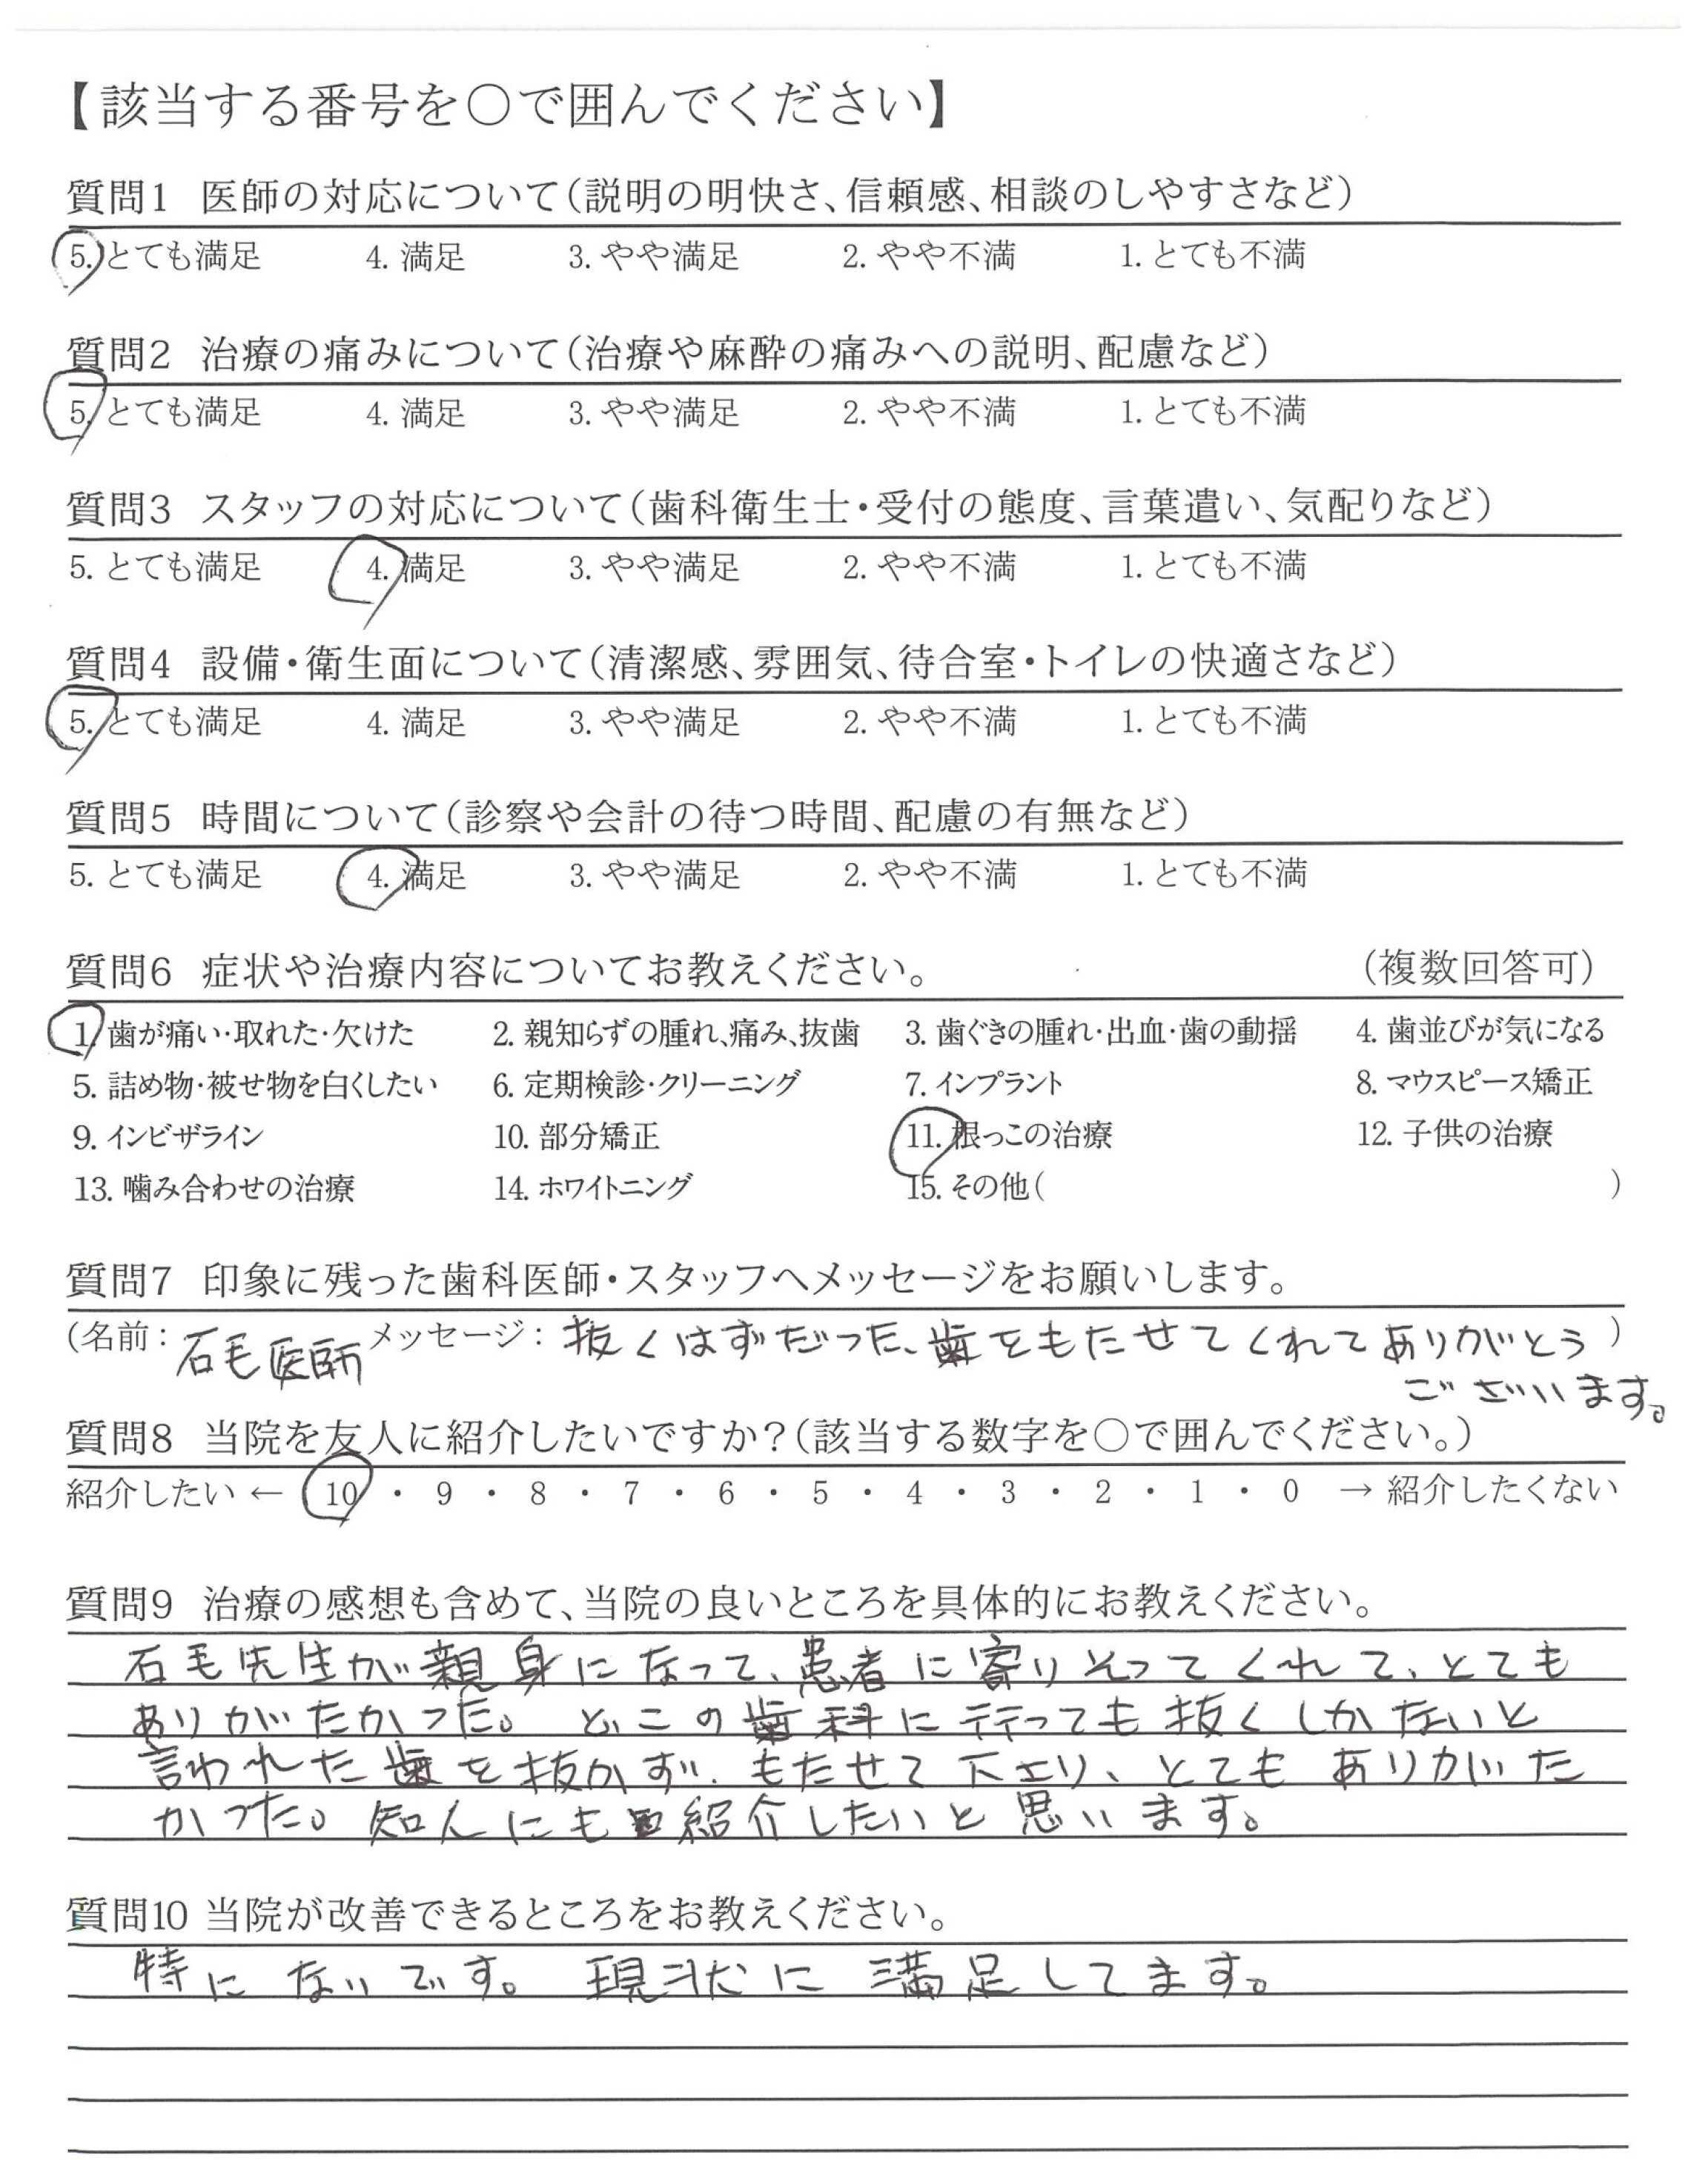 【該当する番号を○で囲んでください】
質問1 医師の対応について(説明の明快さ、信頼感、相談のしやすさなど)
5. とても満足 4. 満足 3. やや満足 2. やや不満 1. とても不満
質問2 治療の痛みについて(治療や麻酔の痛みへの説明、配慮など)
5. とても満足 4. 満足 3. やや満足 2. やや不満 1. とても不満
質問3 スタッフの対応について(歯科衛生士・受付の態度、言葉遣い、気配りなど)
5. とても満足 4. 満足 3. やや満足 2. やや不満 1. とても不満
質問4 設備・衛生面について(清潔感、雰囲気、待合室・トイレの快適さなど)
5. とても満足 4. 満足 3. やや満足 2. やや不満 1. とても不満
質問5 時間について(診察や会計の待つ時間、配慮の有無など)
5. とても満足 4. 満足 3. やや満足 2. やや不満 1. とても不満
質問6 症状や治療内容についてお教えください。 (複数回答可)
1. 歯が痛い・取れた・欠けた 2. 親知らずの腫れ、痛み、抜歯 3. 歯ぐきの腫れ・出血・歯の動揺 4. 歯並びが気になる
5. 詰め物・被せ物を白くしたい 6. 定期検診・クリーニング 7. インプラント 8. マウスピース矯正
9. インビザライン 10. 部分矯正 11. 根っこの治療 12. 子供の治療
13. 噛み合わせの治療 14. ホワイトニング 15. その他( )
質問7 印象に残った歯科医師・スタッフへメッセージをお願いします。
(名前: 石毛医師 メッセージ: 抜くはずだった、歯をもたせてくれてありがとう )
ございます。
質問8 当院を友人に紹介したいですか?(該当する数字を○で囲んでください。)
紹介したい ← 10 ・ 9 ・ 8 ・ 7 ・ 6 ・ 5 ・ 4 ・ 3 ・ 2 ・ 1 ・ 0 → 紹介したくない
質問9 治療の感想も含めて、当院の良いところを具体的にお教えください。
石毛先生が親身になって、患者に寄りそってくれて、とても
ありがたかった。どこの歯科に行っても抜くしかないと
言われた歯を抜かず、もたせて下さり、とてもありがた
かった。知人にも紹介したいと思います。
質問10 当院が改善できるところをお教えください。
特にないです。現状に満足してます。